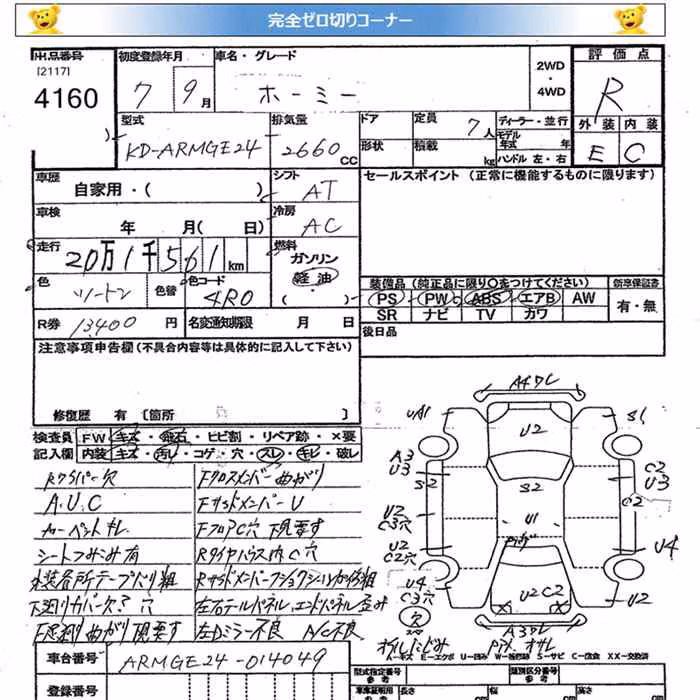 完全ゼロ切りコーナー
出品番号 初度登録年月 車名・グレード 2WD 評価点
[2117]
4160 7 9月 ホーミー ・4WD R
型式 排気量 ドア 定員 ディーラー・並行 外装 内装
KD-ARMGE24 2660 CC 7人 モデル年式 年 E C
形状 積載 kg ハンドル 左・右
車歴 自家用・( ) シフト AT セールスポイント (正常に機能するものに限ります)
車検 年 月( 日) 冷房 AC
走行 20万1千561 km 燃料 ガソリン
軽油
・( )
色 ツートン 色替 色コード 4RO
装備品 (純正品に限り○をつけてください) 新車保証書
PS PW ABS エアB AW 有・無
SR ナビ TV カワ
R券 13400 円 名変通知期限 月 日 後日品
注意事項申告欄 (不具合内容等は具体的に記入して下さい)
修復歴 有 [箇所 ]
検査員 FW キズ・飛石・ヒビ割・リペア跡・×要
記入欄 内装 キズ・汚レ・コゲ・穴・スレ・キレ・破レ
Rワイパー欠 Fクロスメンバー曲がり
A.U.C FサイドメンバーU
カーペットキレ FフロアC穴 下現要す
シートフみふみ有 Rタイヤハウス内C穴
外装各所テープバリ粗
下廻りカバー欠?穴 左右テールパネル、エンドパネル歪み
F足廻り曲がり 下現要す 左Dミラー不良 A/C不良
A4ワレ
UA1 S1
U2
A3
U3
S2
C2
U3
S2
C2
U2
C3穴
U1
U2
C2穴
U4
U4
C3穴
U2C2
U2
欠
A3ワレ
オイルにじみ
A-キズ E-エクボ U-凹み W-補修跡 S-サビ C-腐食 XX-交換済
車台番号 ARMGE24-014049
型式指定番号 参考 類別区分番号 参考
登録番号
車庫証明用 長さ 幅 高さ
cm cm cm